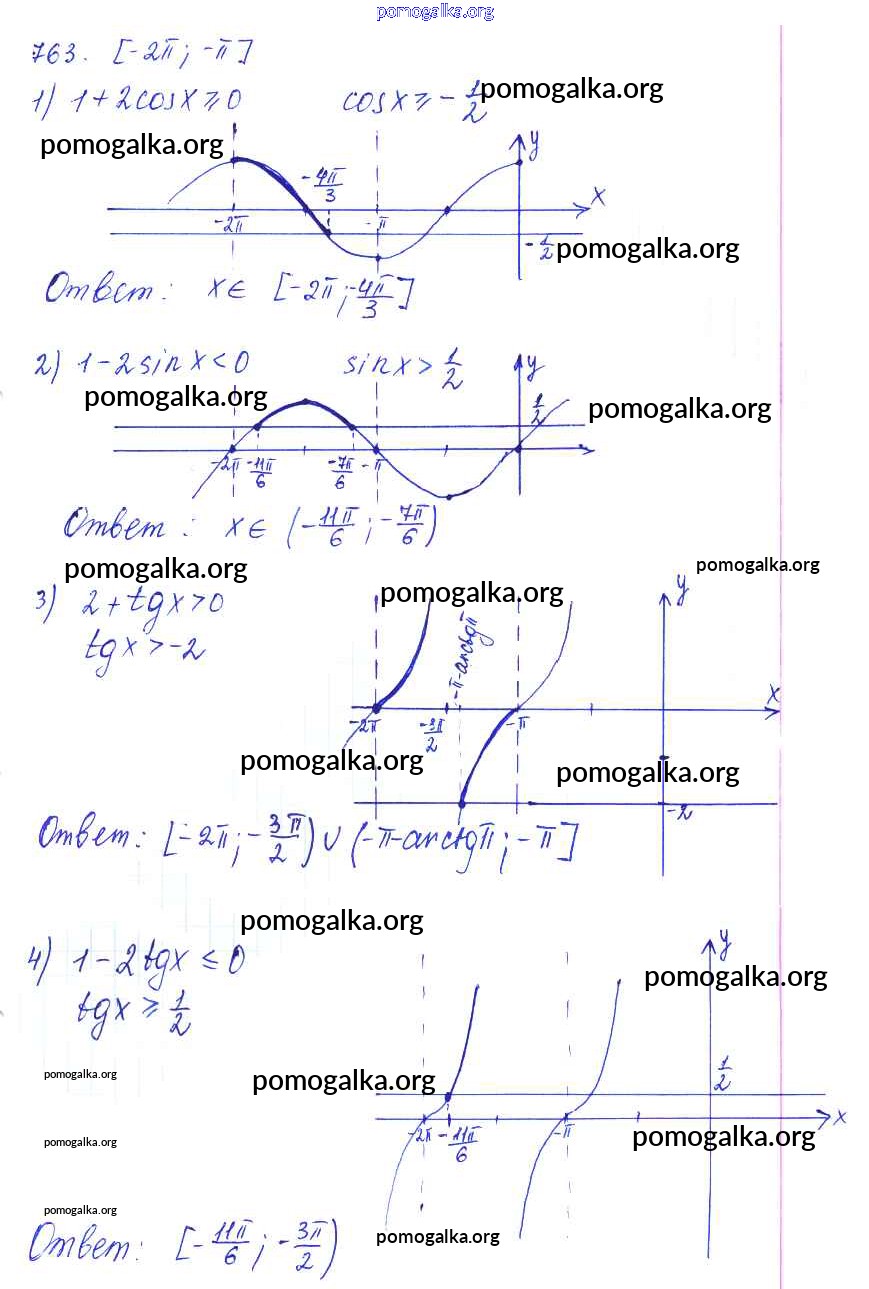 pomogalka.org
763. [-2π; -π]
1) 1+2cosx⩾0 cosx⩾-1/2 pomogalka.org
pomogalka.org
y
-4π/3
x
-2π -π
-1/2 pomogalka.org
Ответ: x∈ [-2π; -4π/3]
2) 1-2sinx<0 sinx>1/2 y
pomogalka.org 1/2 pomogalka.org
-2π -11π/6 -7π/6 -π
Ответ: x∈ (-11π/6; -7π/6)
pomogalka.org pomogalka.org
3) 2+tgx>0 pomogalka.org y
tgx>-2 -π-arctgπ
x
-2π -3π/2 -π
pomogalka.org pomogalka.org
-2
Ответ: [-2π; -3π/2) ∪ (-π-arctgπ; -π]
pomogalka.org
4) 1-2tgx ⩽ 0 y
pomogalka.org
tgx ⩾ 1/2
pomogalka.org pomogalka.org 1/2
-2π -11π/6 -π x
pomogalka.org pomogalka.org
pomogalka.org
Ответ: [-11π/6; -3π/2) pomogalka.org